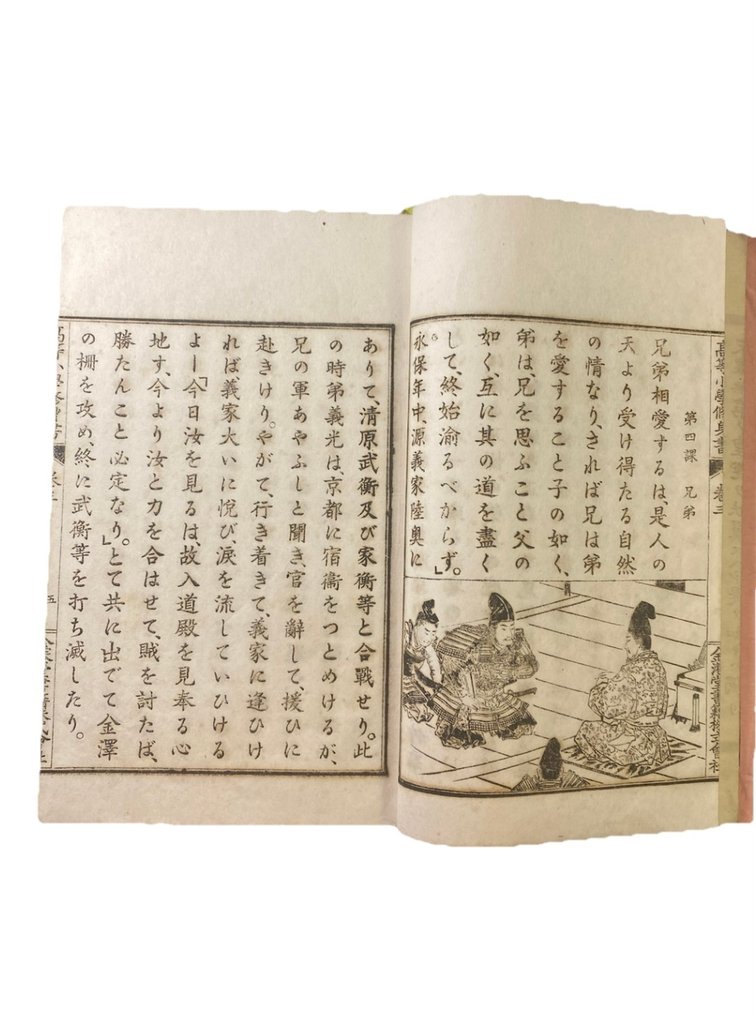 高等小學修身書
卷三
第四課 兄弟
兄弟相愛するは、是人の
天より受け得たる自然
の情なり、されば兄は弟
を愛すること子の如く、
弟は、兄を思ふこと父の
如く、互に其の道を盡く
して、終始渝るべからず。」
永保年中、源義家陸奧に
ありて、清原武衡及び家衡等と合戰せり。此
の時弟義光は、京都に宿衞をつとめけるが、
兄の軍あやふしと聞き、官を辭して、援ひに
赴きけり。やがて、行き着きて、義家に逢ひけ
れば、義家大いに悅び、淚を流していひける
よー「今日汝を見るは、故入道殿を見奉る心
地す、今より汝と力を合はせて、賊を討たば、
勝たんこと必定なり。」とて共に出でて金澤
の柵を攻め、終に武衡等を打ち滅したり。
五